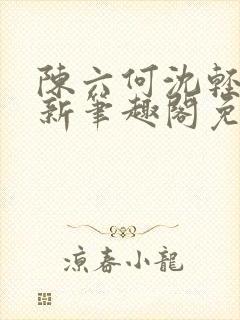 陳六何沈輕
新筆趣閣免
涼春小龍